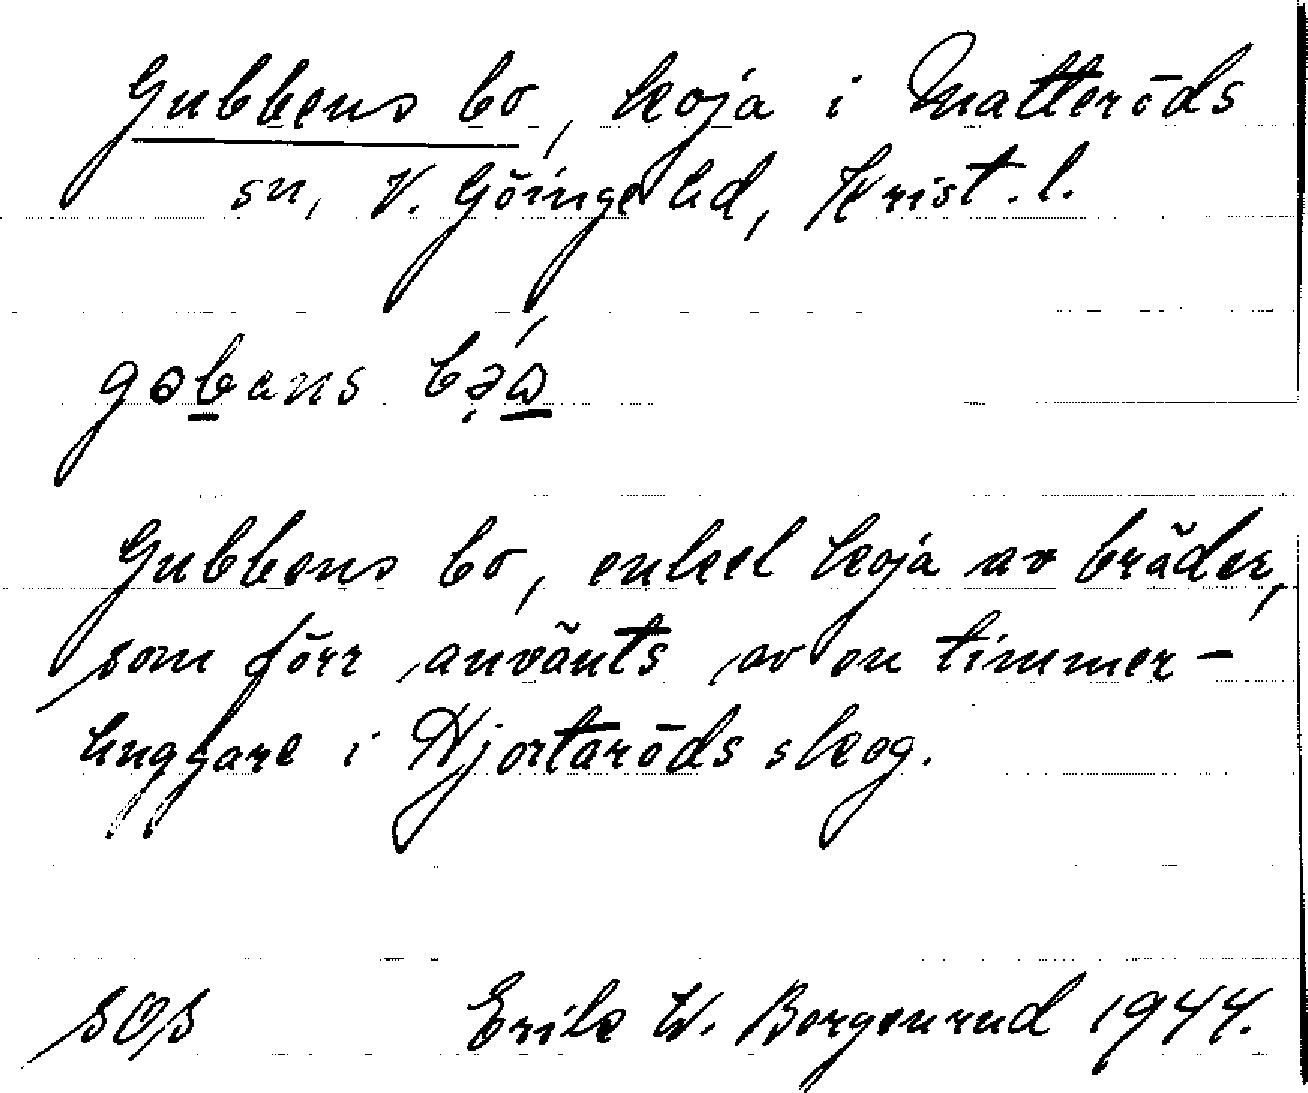 Gubbens bo, koja i Matteröds
sn, V. Göinge hd, Krist. l.
Gubbens bo, enkel koja av bräder,
som förr använts av en timmer-
huggare i Hjortaröds skog.
Erik W. Bergenrud 1944.